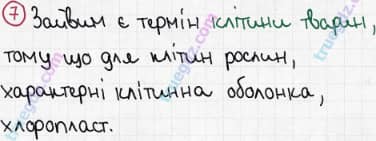 7 Зайвим є термін клітини тварин,
тому що для клітин рослин,
характерні клітинна оболонка,
хлоропласт.